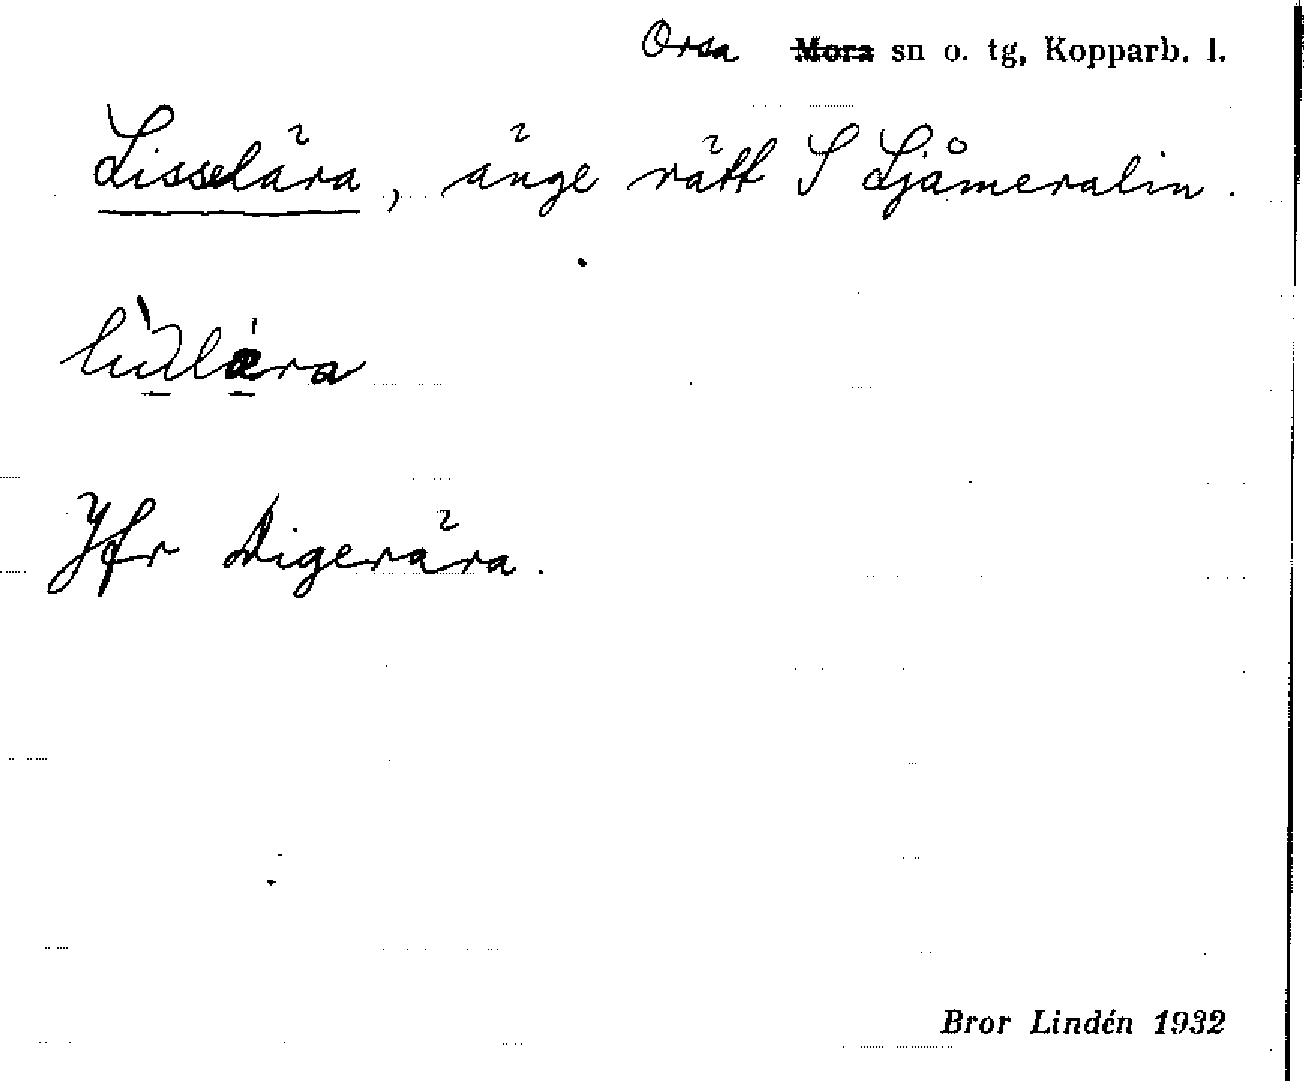 Orsa Mora sn o. tg, Kopparb. l.
Lisselära, änge rätt S Ljåmeralin.
Jfr Digerära.
Bror Lindén 1932